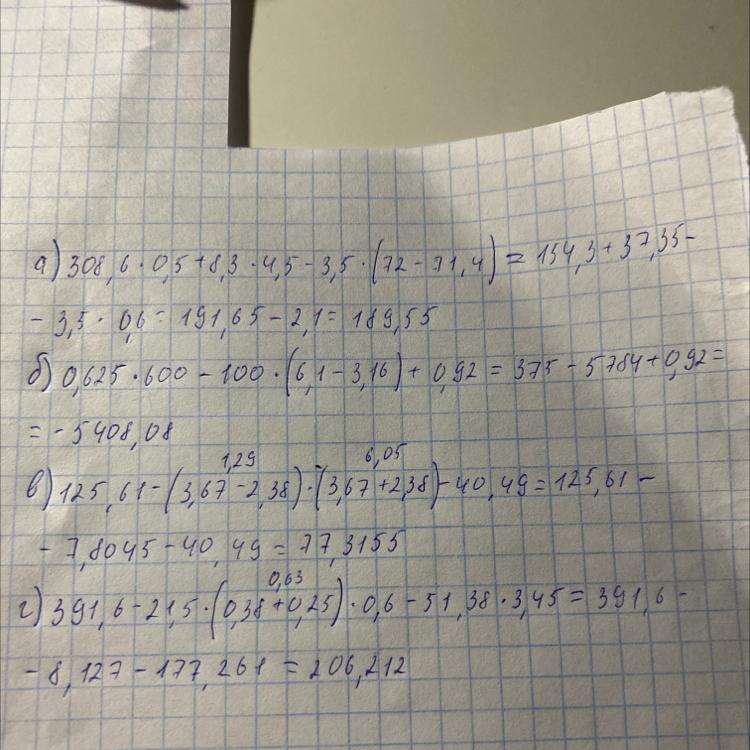 а) 308,6 · 0,5 + 8,3 · 4,5 - 3,5 · (72 - 71,4) = 154,3 + 37,35 -
- 3,5 · 0,6 = 191,65 - 2,1 = 189,55
б) 0,625 · 600 - 100 · (6,1 - 3,16) + 0,92 = 375 - 5784 + 0,92 =
= - 5408,08
1,29 6,05
в) 125,61 - (3,67 - 2,38) · (3,67 + 2,38) - 40,49 = 125,61 -
- 7,8045 - 40,49 = 77,3155
0,63
г) 391,6 - 21,5 · (0,38 + 0,25) · 0,6 - 51,38 · 3,45 = 391,6 -
- 8,127 - 177,261 = 206,212